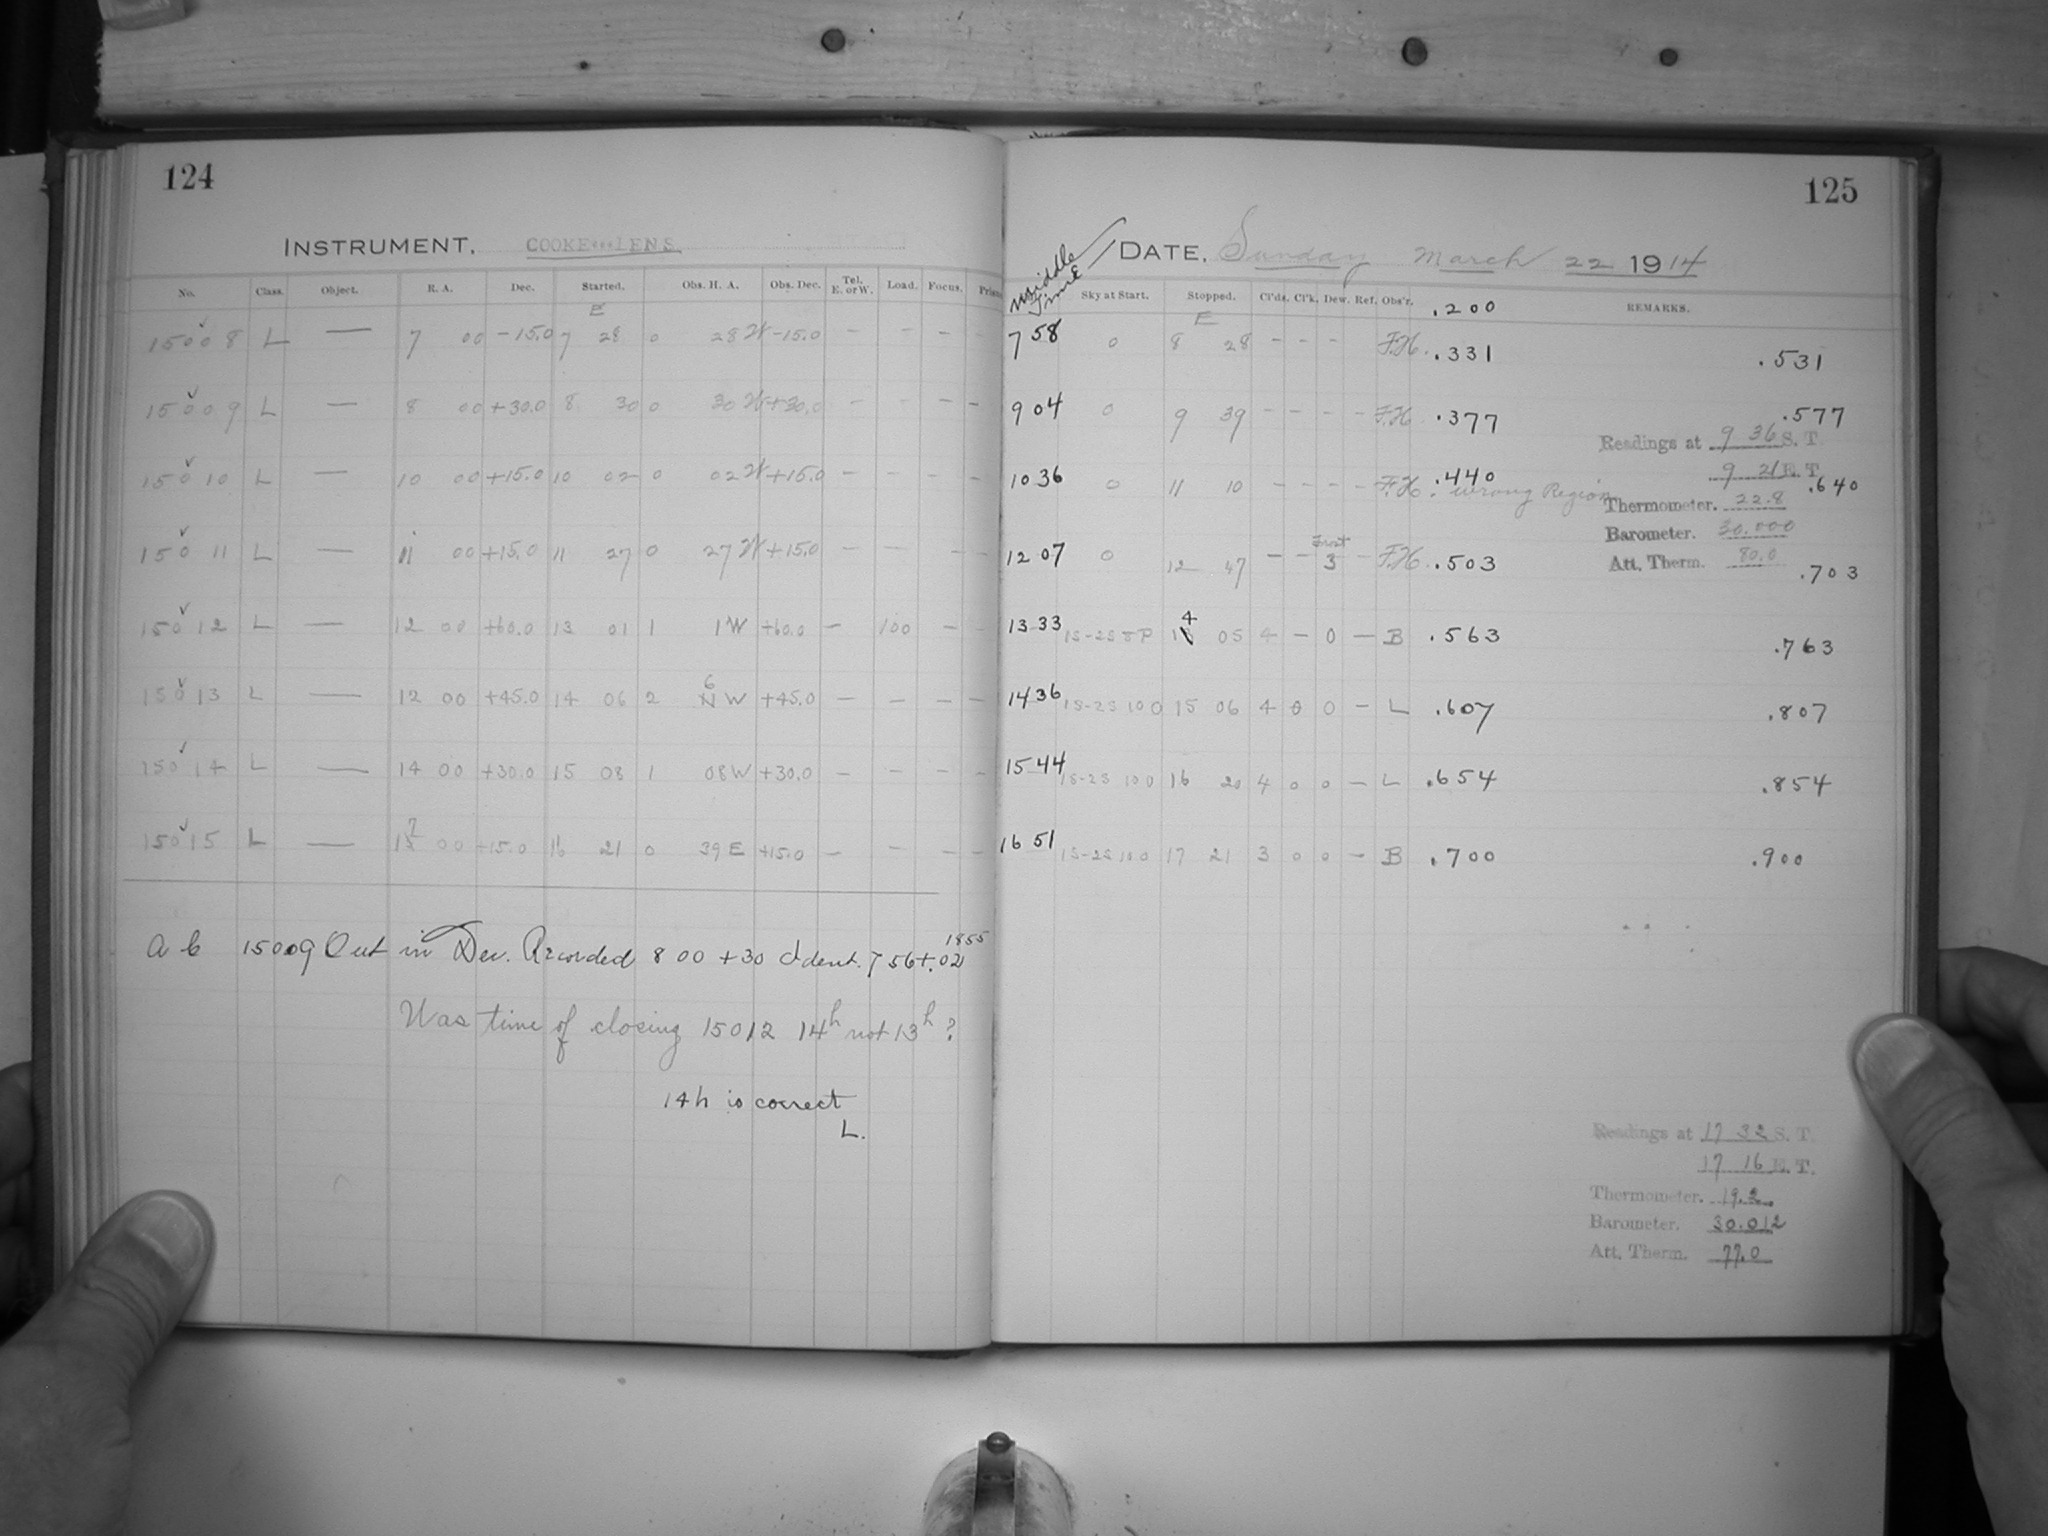 124
INSTRUMENT. COOKE LENS.
No. Class. Object. R. A. Dec. Started. Obs. H. A. Obs. Dec. Tel. E. or W. Load. Focus.
E
15008 L — 7 00 -15.0 7 28 0 28 W -15.0 - - - -
15009 L — 8 00 +30.0 8 30 0 30 W +30.0 - - - -
15010 L — 10 00 +15.0 10 02 0 02 W +15.0 - - - -
15011 L — 11 00 +15.0 11 27 0 27 W +15.0 - - - -
15012 L — 12 00 +60.0 13 01 1 1 W +60.0 - 100 - -
15013 L — 12 00 +45.0 14 06 2 6 W +45.0 - - - -
15014 L — 14 00 +30.0 15 08 1 08 W +30.0 - - - -
15015 L — 17 00 +15.0 16 21 0 39 E +15.0 - - - -
a c 15009 Out in Dec. Recorded 8 00 +30 Ident. 7 56 +.02 1855
Was time of closing 15012 14h not 13h ?
14h is correct
L.
125
Middle Time
DATE, Sunday March 22 1914
Sky at Start. Stopped. Cl'ds. Cl'k. Dew. Ref. Obs'r. .200 REMARKS.
E
7 58 0 8 28 - - - F.H. .331 .531
9 04 0 9 39 - - - - F.H. .377 .577
10 36 0 11 10 - - - - F.H. .440 wrong Region .640
12 07 0 12 47 - - Frost 3 F.H. .503 .703
13 33 1S-2S 8P 14 05 4 - 0 - B .563 .763
14 36 1S-2S 100 15 06 4 0 0 - L .607 .807
15 44 1S-2S 100 16 20 4 0 0 - L .654 .854
16 51 1S-2S 100 17 21 3 0 0 - B .700 .900
Readings at 9 36 S. T.
9 21 E. T.
Thermometer. 22.8
Barometer. 30.000
Att. Therm. 80.0
Readings at 17 32 S. T.
17 16 E. T.
Thermometer. 19.2
Barometer. 30.012
Att. Therm. 77.0